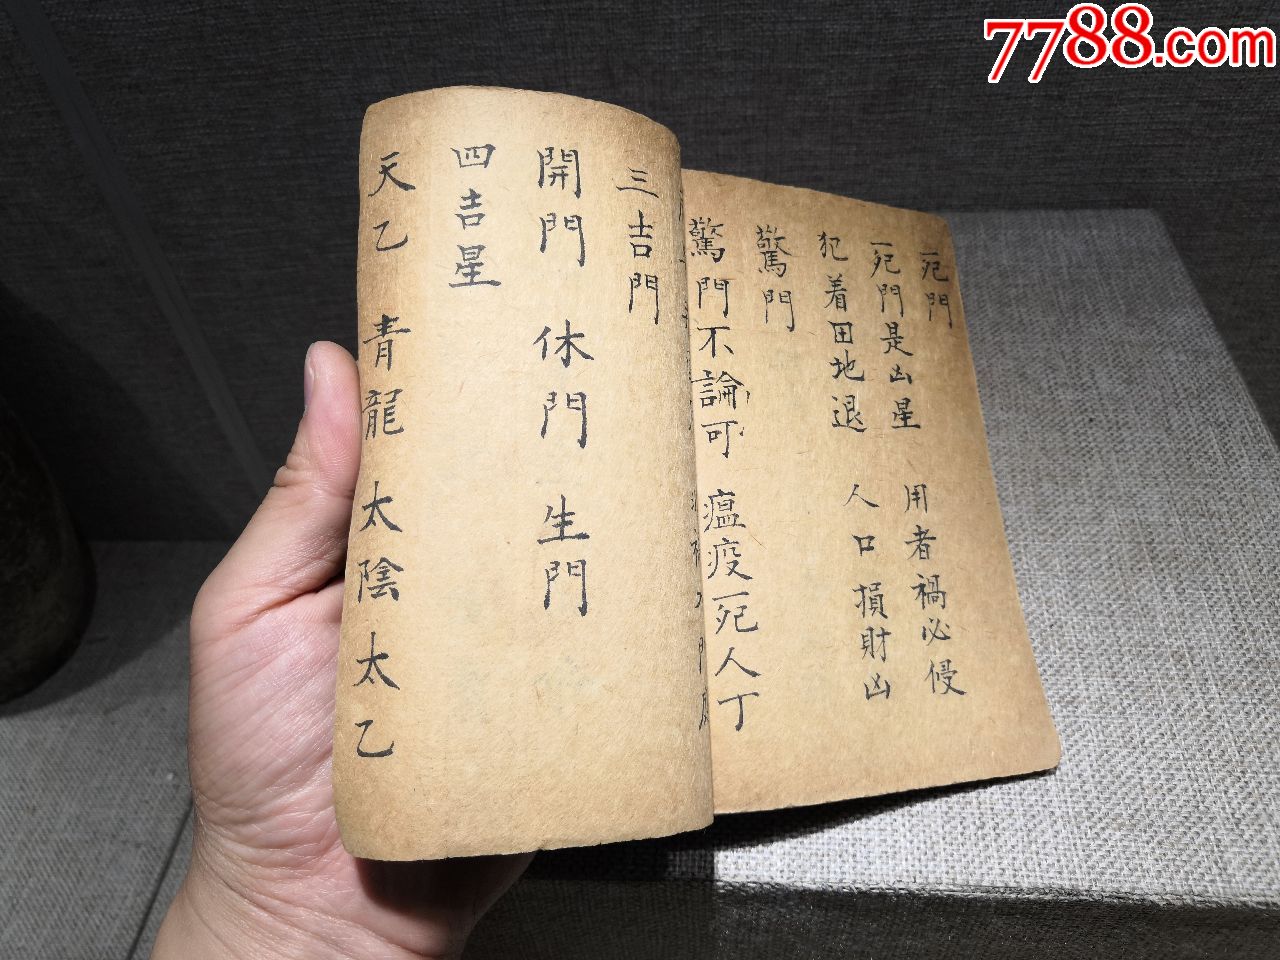 7788.com
死門
死門是凶星 用者禍必侵
犯着田地退 人口損財凶
驚門
驚門不論可 瘟疫死人丁
三吉門
開門 休門 生門
四吉星
天乙 青龍 太陰 太乙